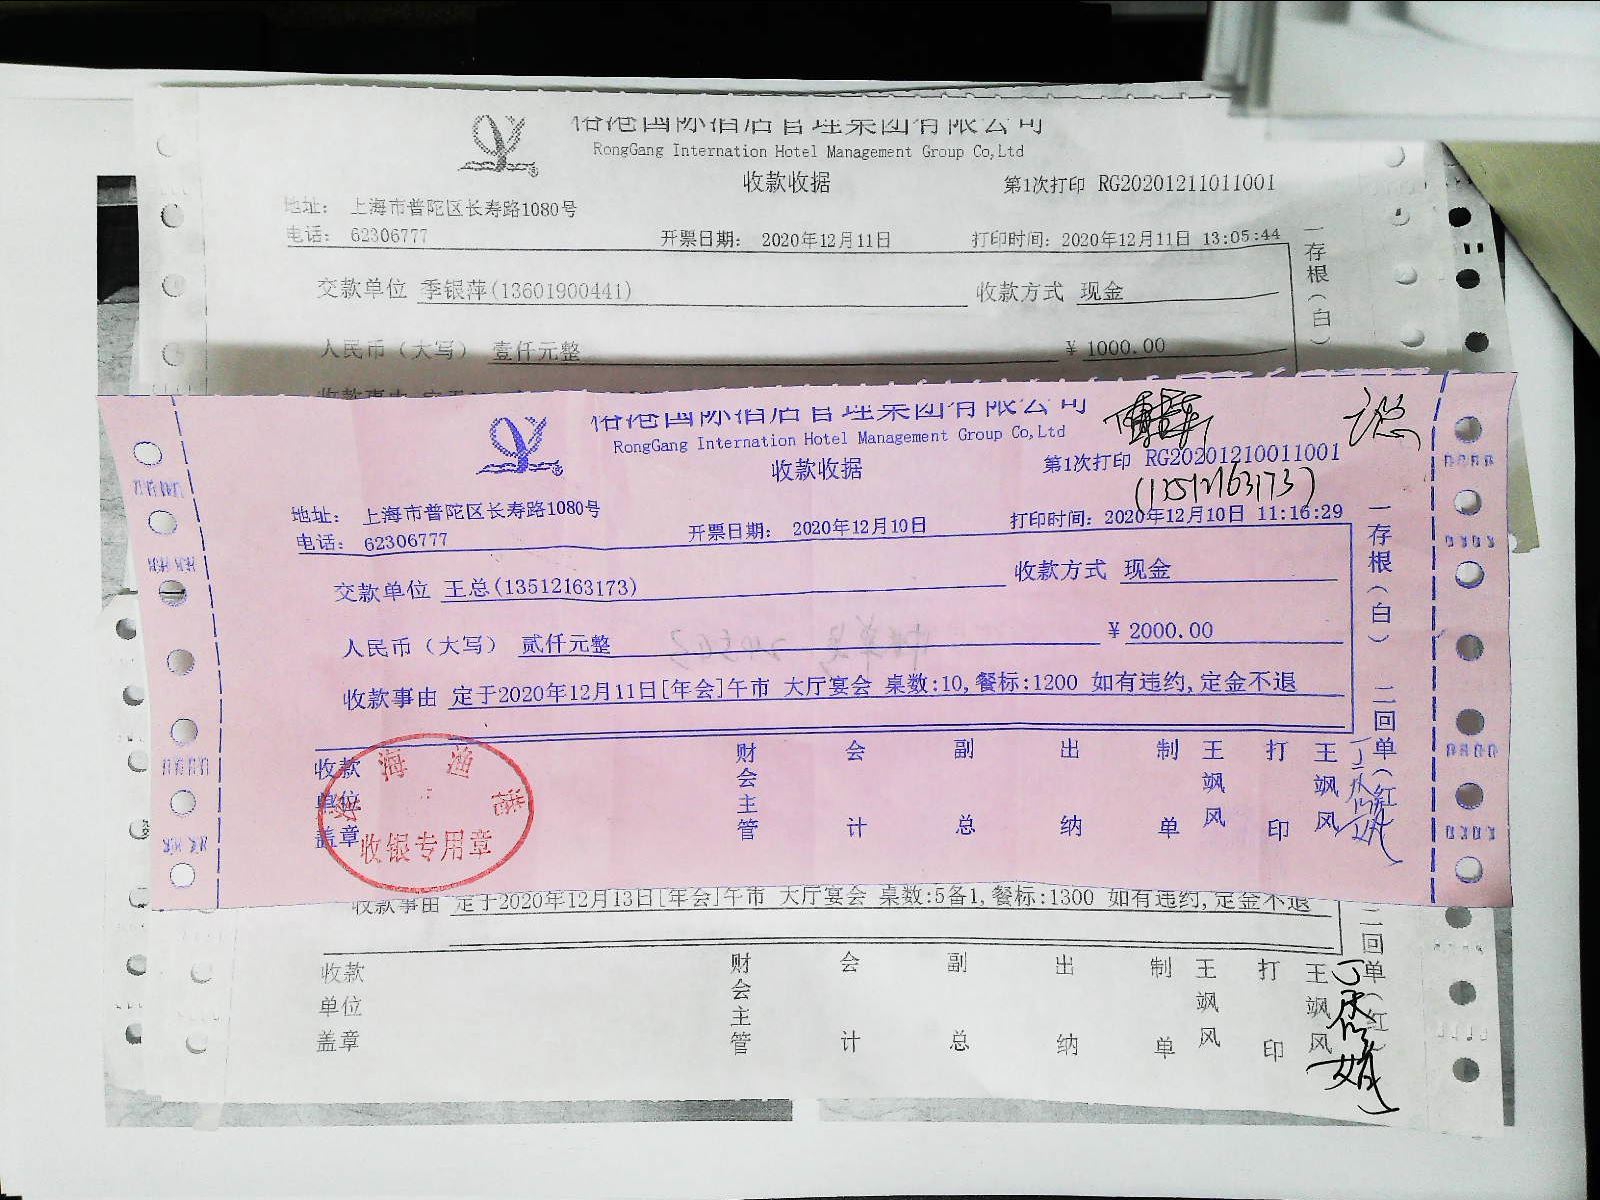 国际酒店管理集团有限公司
RongGang Internation Hotel Management Group Co,Ltd
收款收据
第1次打印 RG20201211011001
地址： 上海市普陀区长寿路1080号
电话： 62306777
开票日期： 2020年12月11日
打印时间：2020年12月11日 13:05:44
交款单位 季银萍(13601900441)
收款方式 现金
人民币（大写） 壹仟元整
¥ 1000.00
一存根（白）
国际酒店管理集团有限公司
RongGang Internation Hotel Management Group Co,Ltd
收款收据
第1次打印 RG20201210011001
(13512163173)
地址： 上海市普陀区长寿路1080号
电话： 62306777
开票日期： 2020年12月10日
打印时间：2020年12月10日 11:16:29
交款单位 王总(13512163173)
收款方式 现金
人民币（大写） 贰仟元整
¥ 2000.00
收款事由 定于2020年12月11日[年会]午市 大厅宴会 桌数:10,餐标:1200 如有违约,定金不退
一存根（白） 二回单（红
收款单位盖章
财会主管 会计 副总 出纳 制单 王飒风 打印 王飒风
收银专用章
收款事由 定于2020年12月13日[年会]午市 大厅宴会 桌数:5备1,餐标:1300 如有违约,定金不退
二回单（红
收款单位盖章
财会主管 会计 副总 出纳 制单 王飒风 打印 王飒风